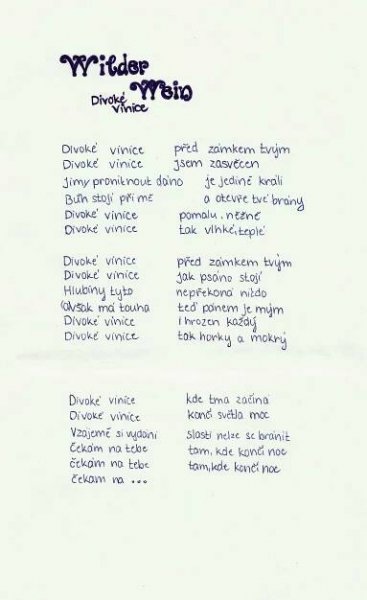 Wilder
Wein
Divoké
vinice
Divoké vinice před zámkem tvým
Divoké vinice jsem zasvěcen
jimy proniknout dáno je jediné králi
Bůh stojí při mě a otevře tvé brány
Divoké vinice pomalu, něžně
Divoké vinice tak vlhké, teplé
Divoké vinice před zámkem tvým
Divoké vinice jak psáno stojí
Hlubiny tyto nepřekoná nikdo
(Avšak má touha teď pánem je mým
Divoké vinice i hrozen každý
Divoké vinice tak horký a mokrý
Divoké vinice kde tma začíná
Divoké vinice končí světla moc
Vzájemě si vydáni slasti nelze se bránit
čekám na tebe tam, kde končí noc
čekám na tebe tam, kde končí noc
čekám na ...